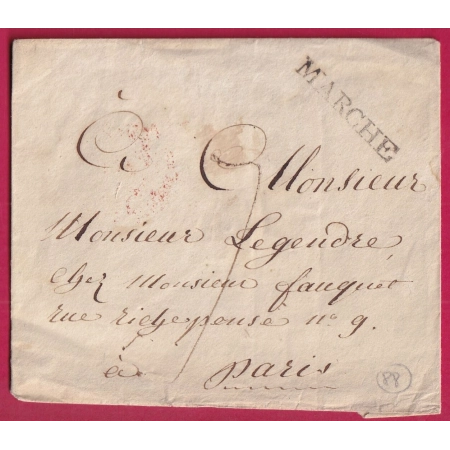 MARCHE
à Monsieur
Monsieur Legendre,
chez Monsieur fauquet
rue richepensé nº 9.
à paris
88